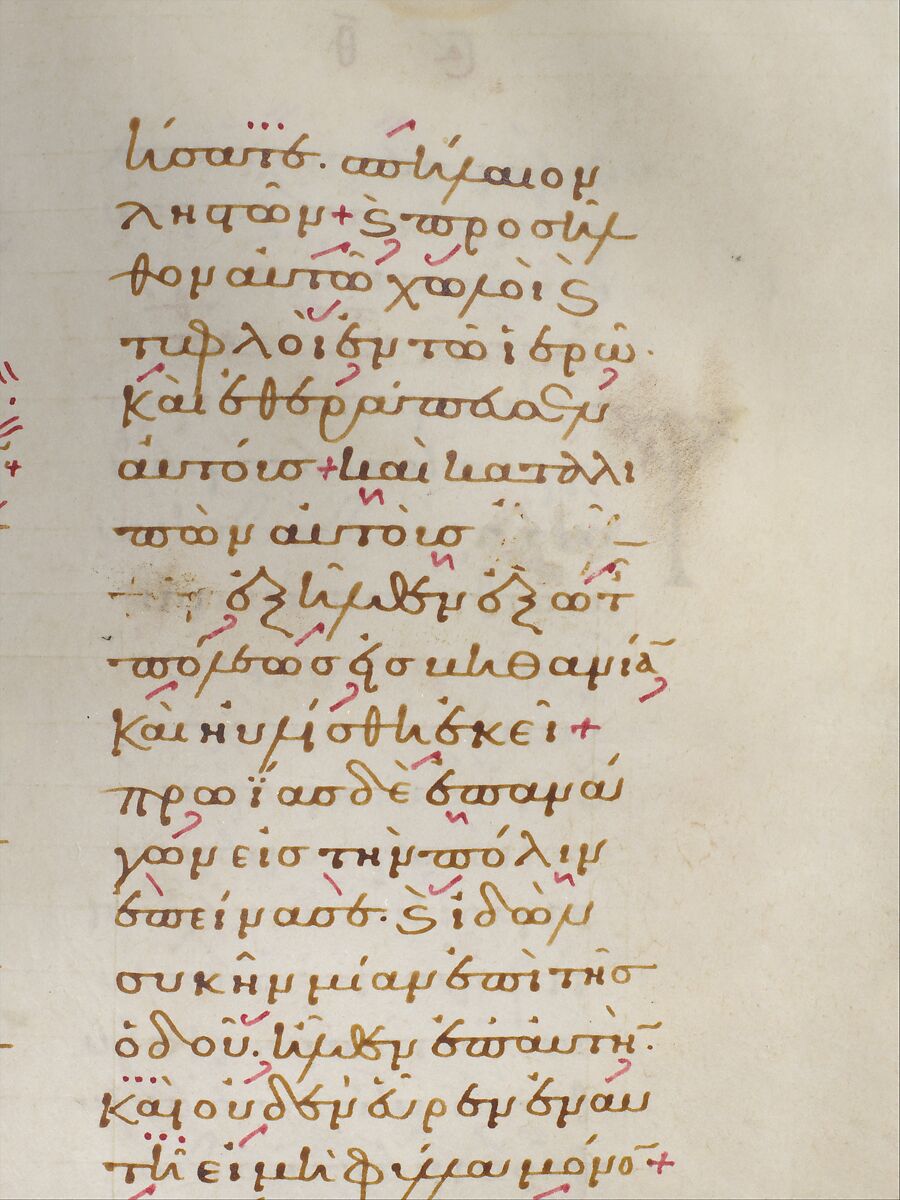 ήσατε. σπήλαιον
ληστῶν + ϗ προσῆλ
θον αὐτῶ χωλοὶ ϗ
τυφλοὶ ἐν τῶ ἱερῶ.
καὶ ἐθεράπευσεν
αὐτοὺς + καὶ καταλι
πὼν αὐτοὺς
ἐξῆλθεν ἔξω τῆς
πόλεως εἰς βηθανίᾱ
καὶ ηὐλίσθη ἐκεῖ +
πρωΐας δὲ ἐπανά
γων εἰς τὴν πόλιν
ἐπείνασε. ϗ ἰδὼν
συκῆν μίαν ἐπὶ τῆς
ὁδοῦ. ἦλθεν ἐπ αὐτη̄.
καὶ οὐδὲν εὗρεν ἐν αὐ
τῆ εἰ μὴ φύλλα μόνο̄ +